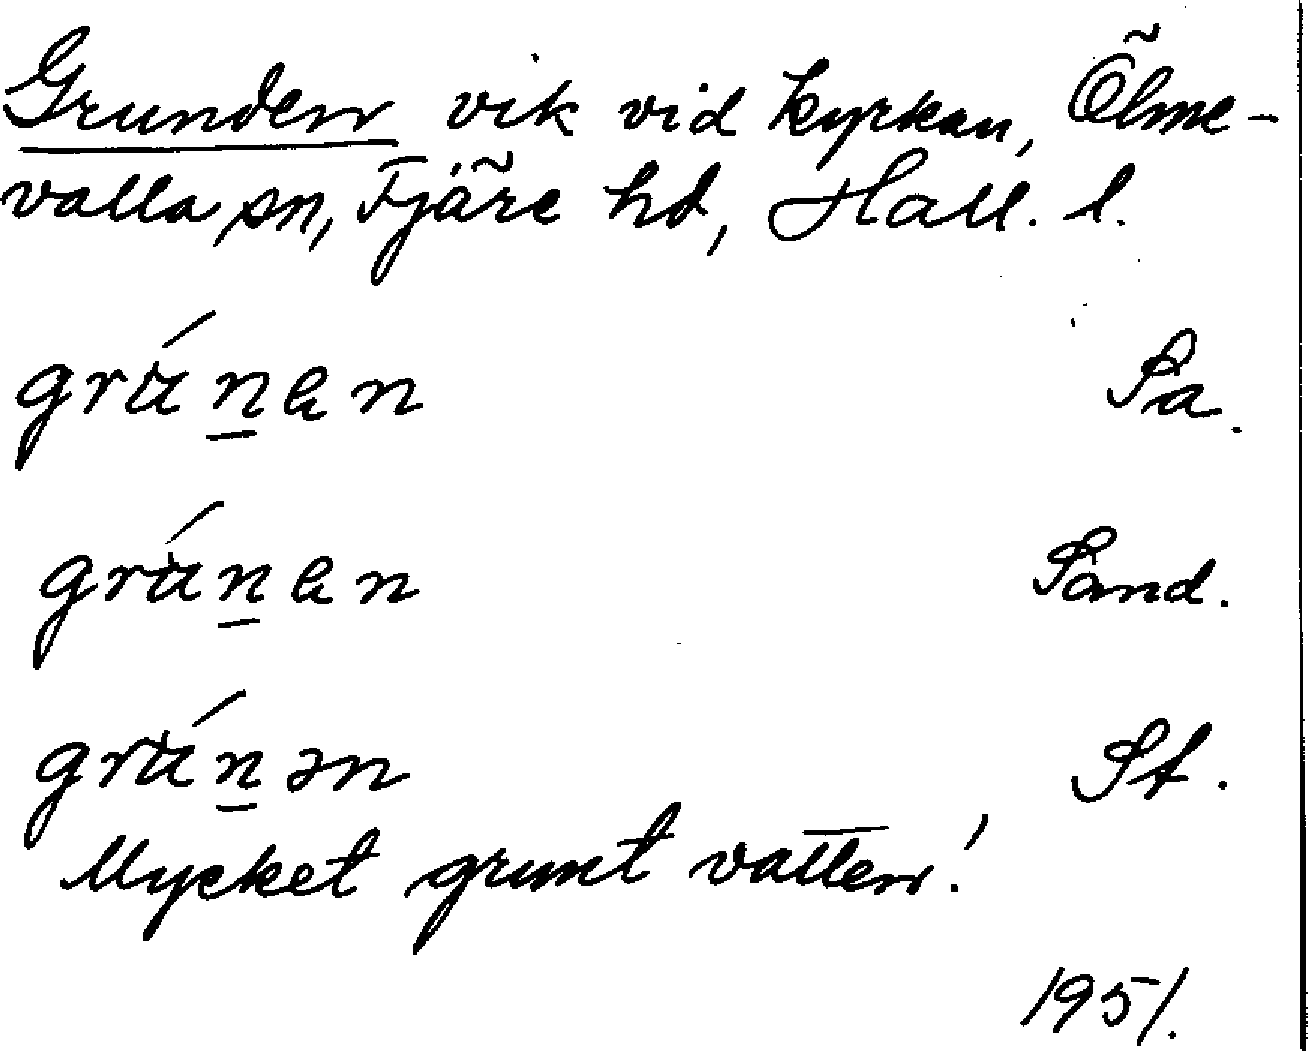 Grunden vik vid kyrkan, Ölme-
valla sn, Fjäre hd, Hall. l.
grú̵n̲en Sa.
grú̵n̲en Sand.
grú̵n̲ən St.
Mycket grunt vatten!
1951.